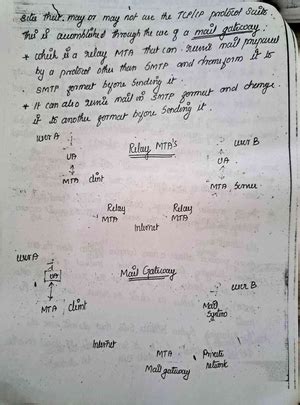 sites that may or may not use the TCP/IP protocol suite.
This is accomplished through the use of a mail gateway.
* which is a relay MTA that can receive mail prepared
by a protocol other than SMTP and transform it to
SMTP format before sending it.
* It can also receive mail in SMTP format and change
it to another format before sending it.
user A
Relay MTA's
user B
UA
UA
MTA client
MTA Server
Relay Relay
MTA MTA
Internet
user A
UA
Mail Gateway
user B
MTA client
Mail
System
Internet
MTA Private
Mail gateway network